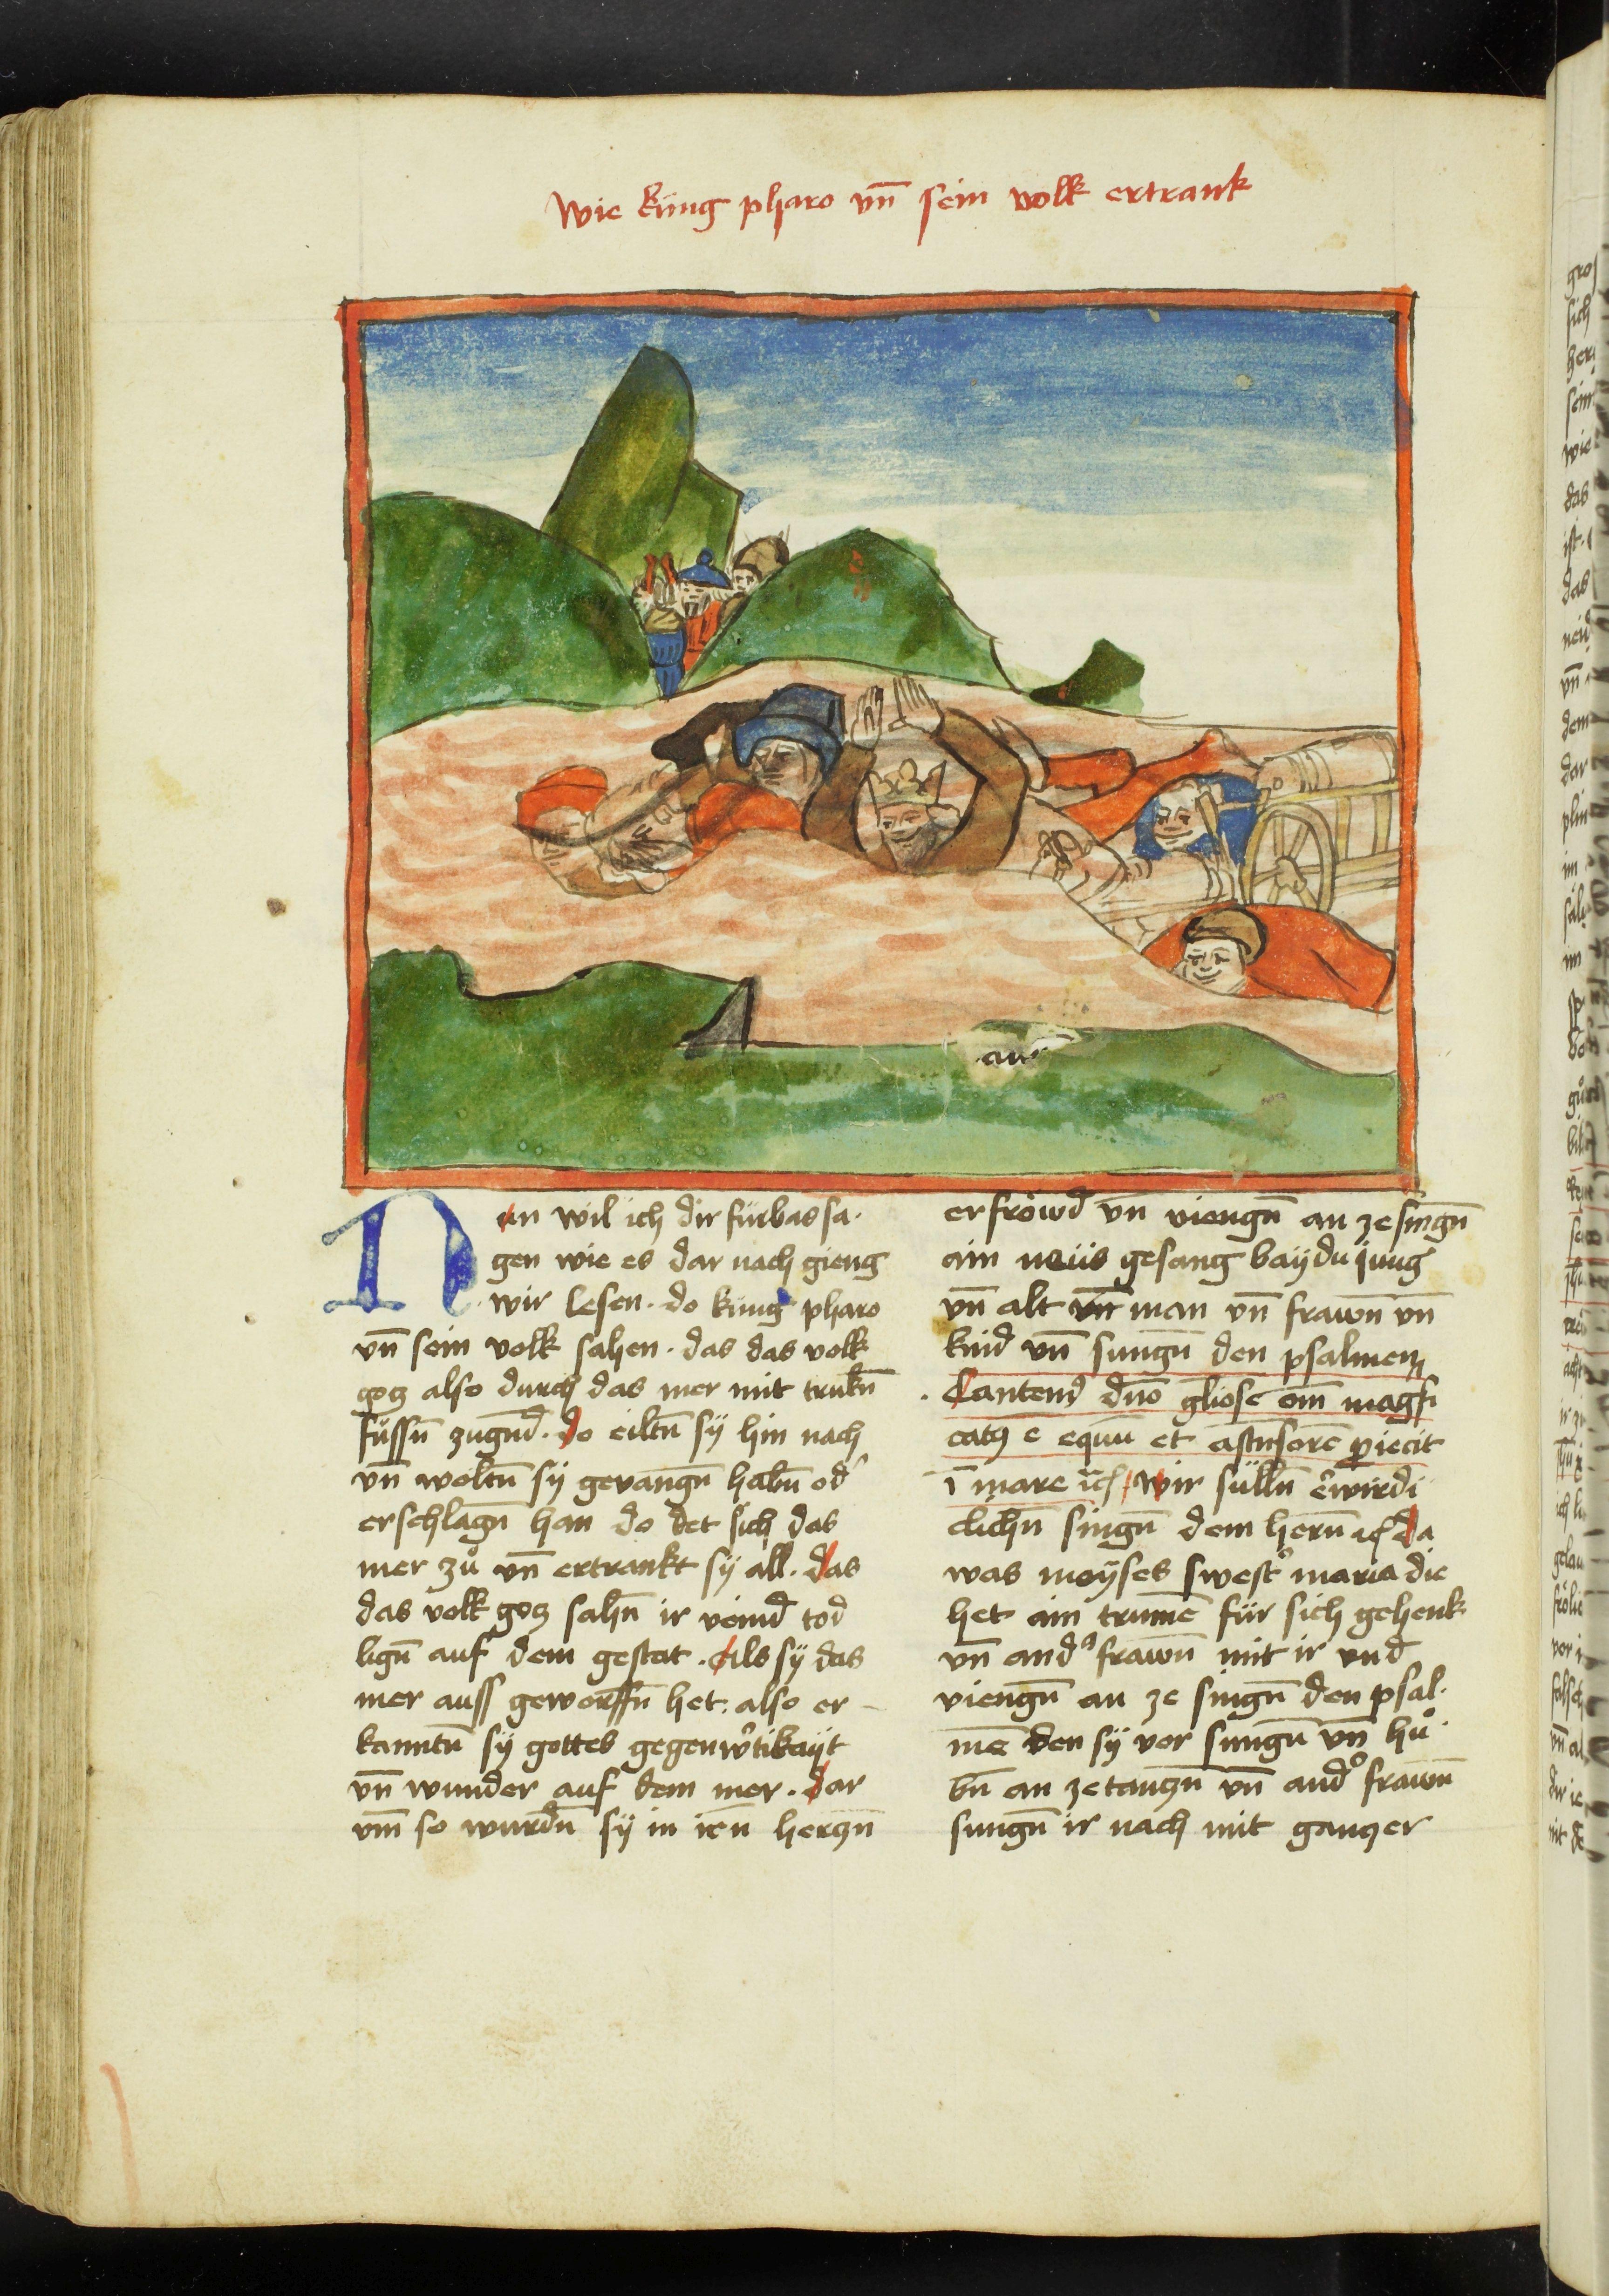 Wie küng pharo vn̄ sein volk ertrank
Nun wil ich dir fürbas sa·
gen wie es dar nach gieng
·wir lesen· do küng pharo
vn̄ sein volk sahen· das das volk
gotz also durch das mer mit trukn̄
füssn̄ zugnd̄· do eiltn̄ sÿ hin nach
vn̄ woltn̄ sÿ gevangn̄ habn̄ od'
erschlagn̄ han do det sich das
mer zů vn̄ ertrankt sÿ all· das
das volk gotz sahn̄ ir veind tod
lign̄ auf dem gestat· Als sÿ das
mer auss geworffn̄ het· also er–
kanntn̄ sÿ gottes gegenw'tikayt
vn̄ wunder auf dem mer· dar
vm̄ so wurdn̄ sÿ in irn̄ hertzn̄
erfröwd vn̄ viengn̄ an ze singn̄
ain neüs gesang baydu jung
vn̄ alt vn̄ man vn̄ frawn̄ vn̄
kind vn̄ sungn̄ den psalmen
·Cantem' dn̄o gl'iose em̄ magfi
catꝰ e equū et astnsorē ꝓiecit
ī mare ꝛc wir sülln̄ e'wirdi
clichn̄ singn̄ dem hern̄ ꝛc da
was moyses swest' maria die
het ain trumē für sich gehenk
vn̄ and' frawn̄ mit ir vnd
viengn̄ an ze singn̄ den psal·
mē den sÿ vor sungn̄ vn̄ hů·
bn̄ an ze tantzn̄ vn̄ and' frawn̄
sungn̄ ir nach mit gantzer